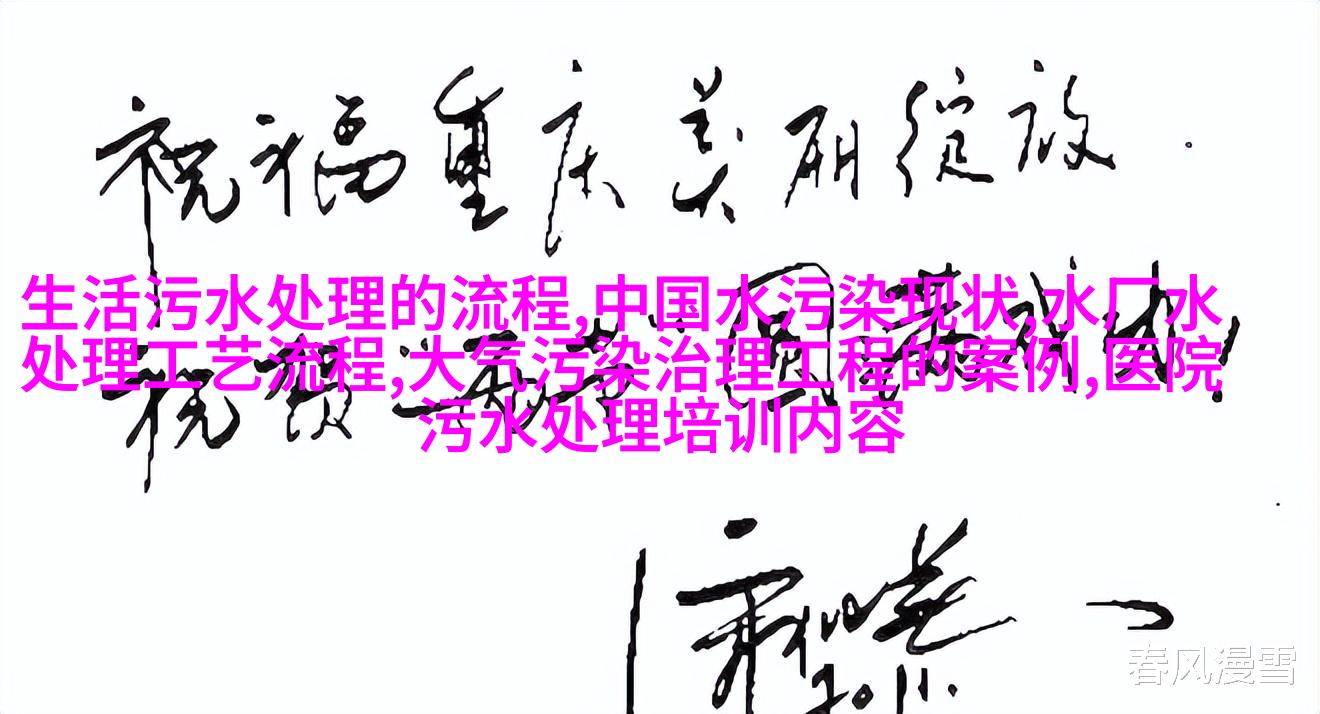 祝福重庆美丽绽放.
生活污水处理的流程,中国水污染现状,水厂水
处理工艺流程,大气污染治理工程的案例,医院
污水处理培训内容
祝 圆满成功!
2011.
春风漫雪